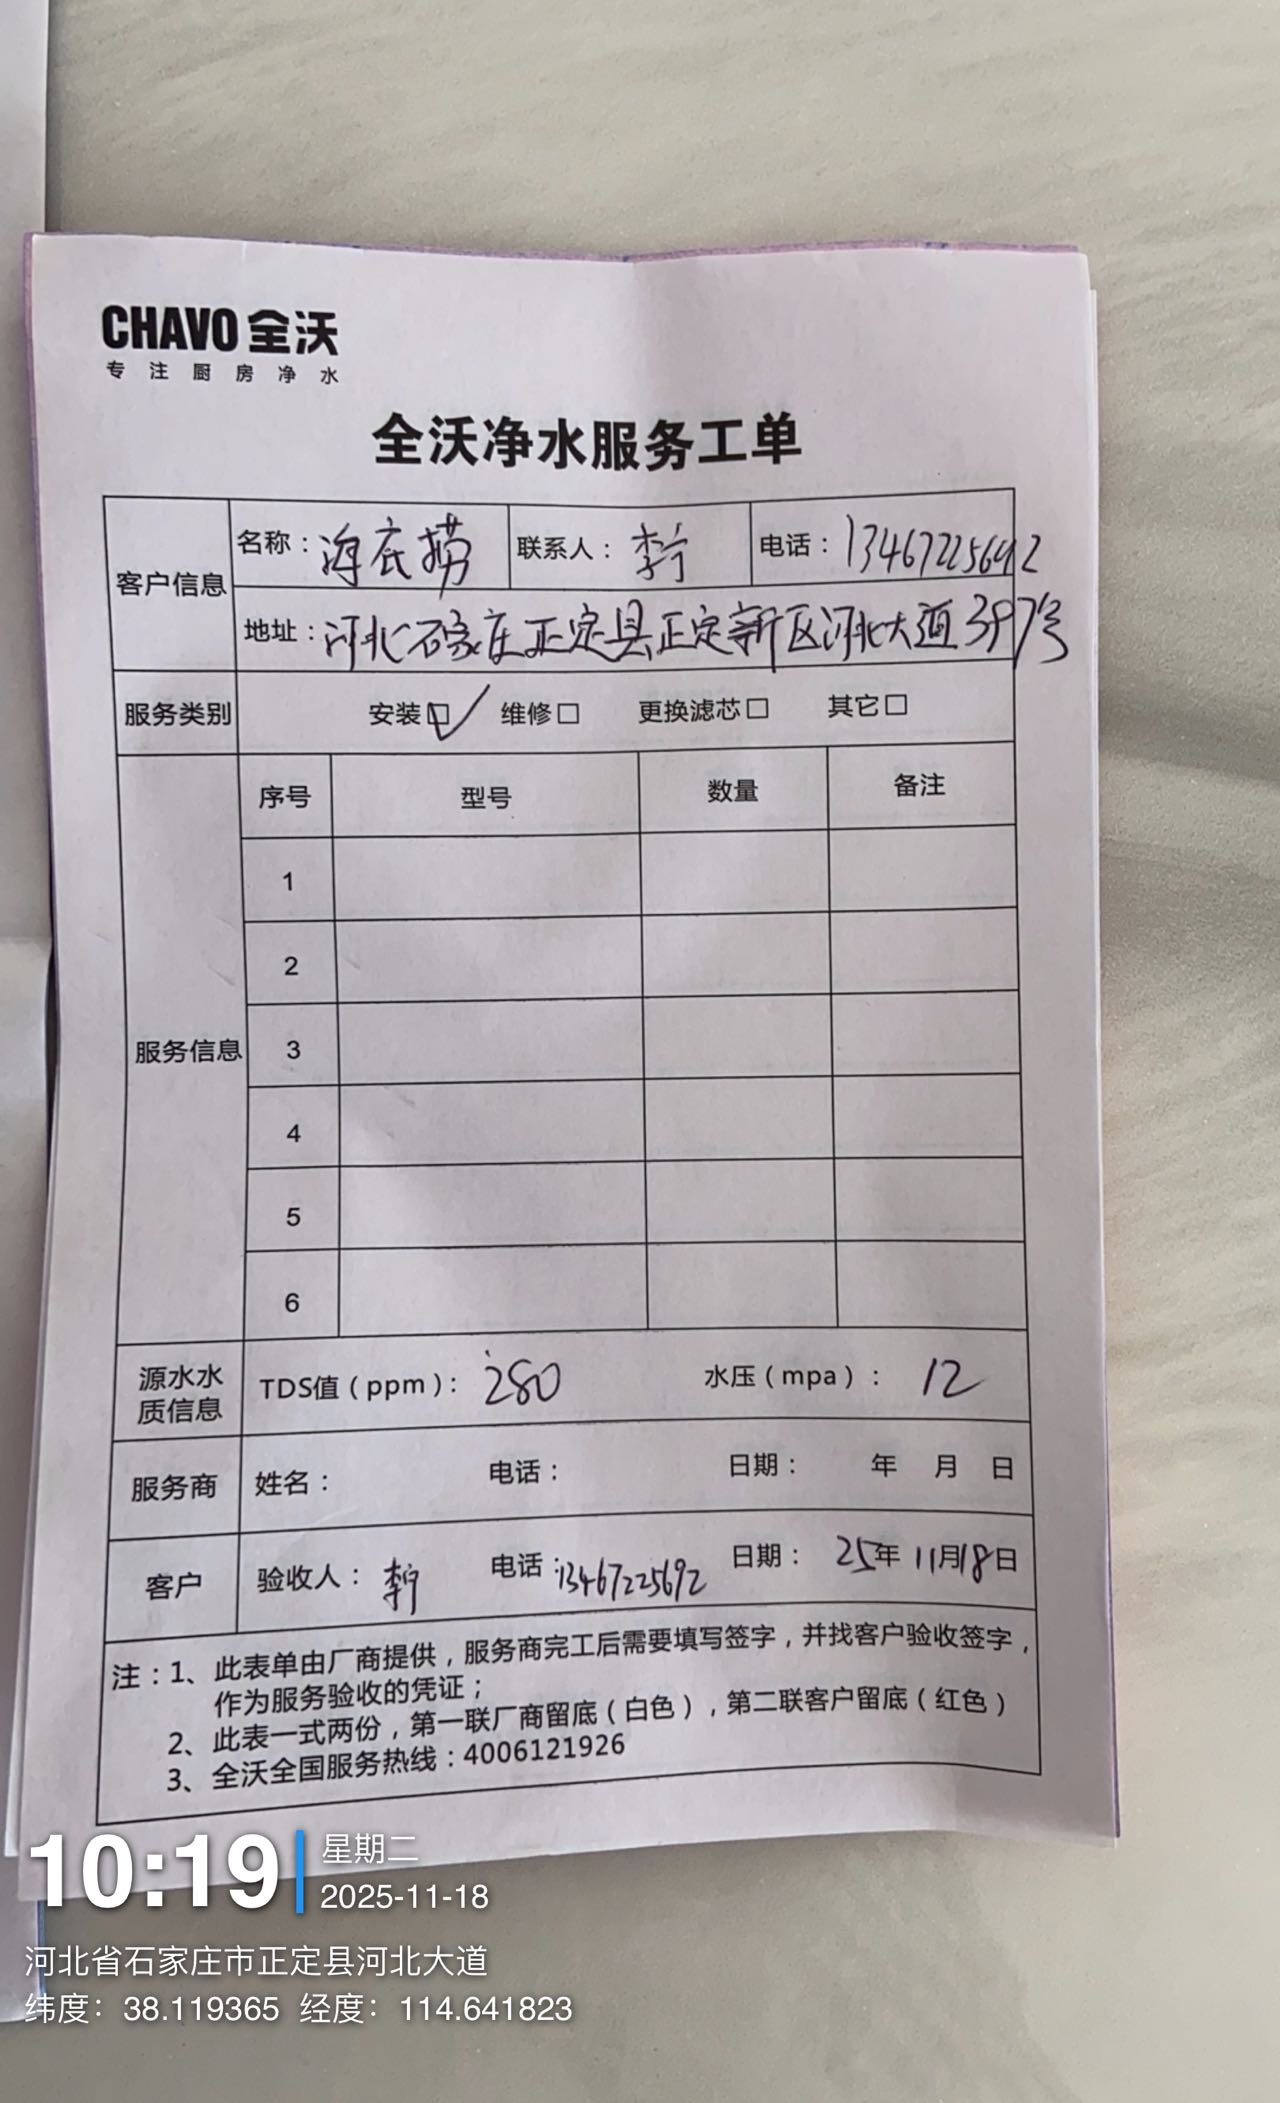 CHAVO 全沃
专注厨房净水
全沃净水服务工单
客户信息 名称：海底捞 联系人：李宁 电话：13467225692
地址：河北石家庄正定县正定新区河北大道397号
服务类别 安装☑ 维修□ 更换滤芯□ 其它□
服务信息 序号 型号 数量 备注
1
2
3
4
5
6
源水水质信息 TDS值（ppm）：280 水压（mpa）：12
服务商 姓名： 电话： 日期： 年 月 日
客户 验收人：李宁 电话：13467225692 日期：25年11月18日
注：1、此表单由厂商提供，服务商完工后需要填写签字，并找客户验收签字，
作为服务验收的凭证；
2、此表一式两份，第一联厂商留底（白色），第二联客户留底（红色）
3、全沃全国服务热线：4006121926
10:19 星期二
2025-11-18
河北省石家庄市正定县河北大道
纬度：38.119365 经度：114.641823